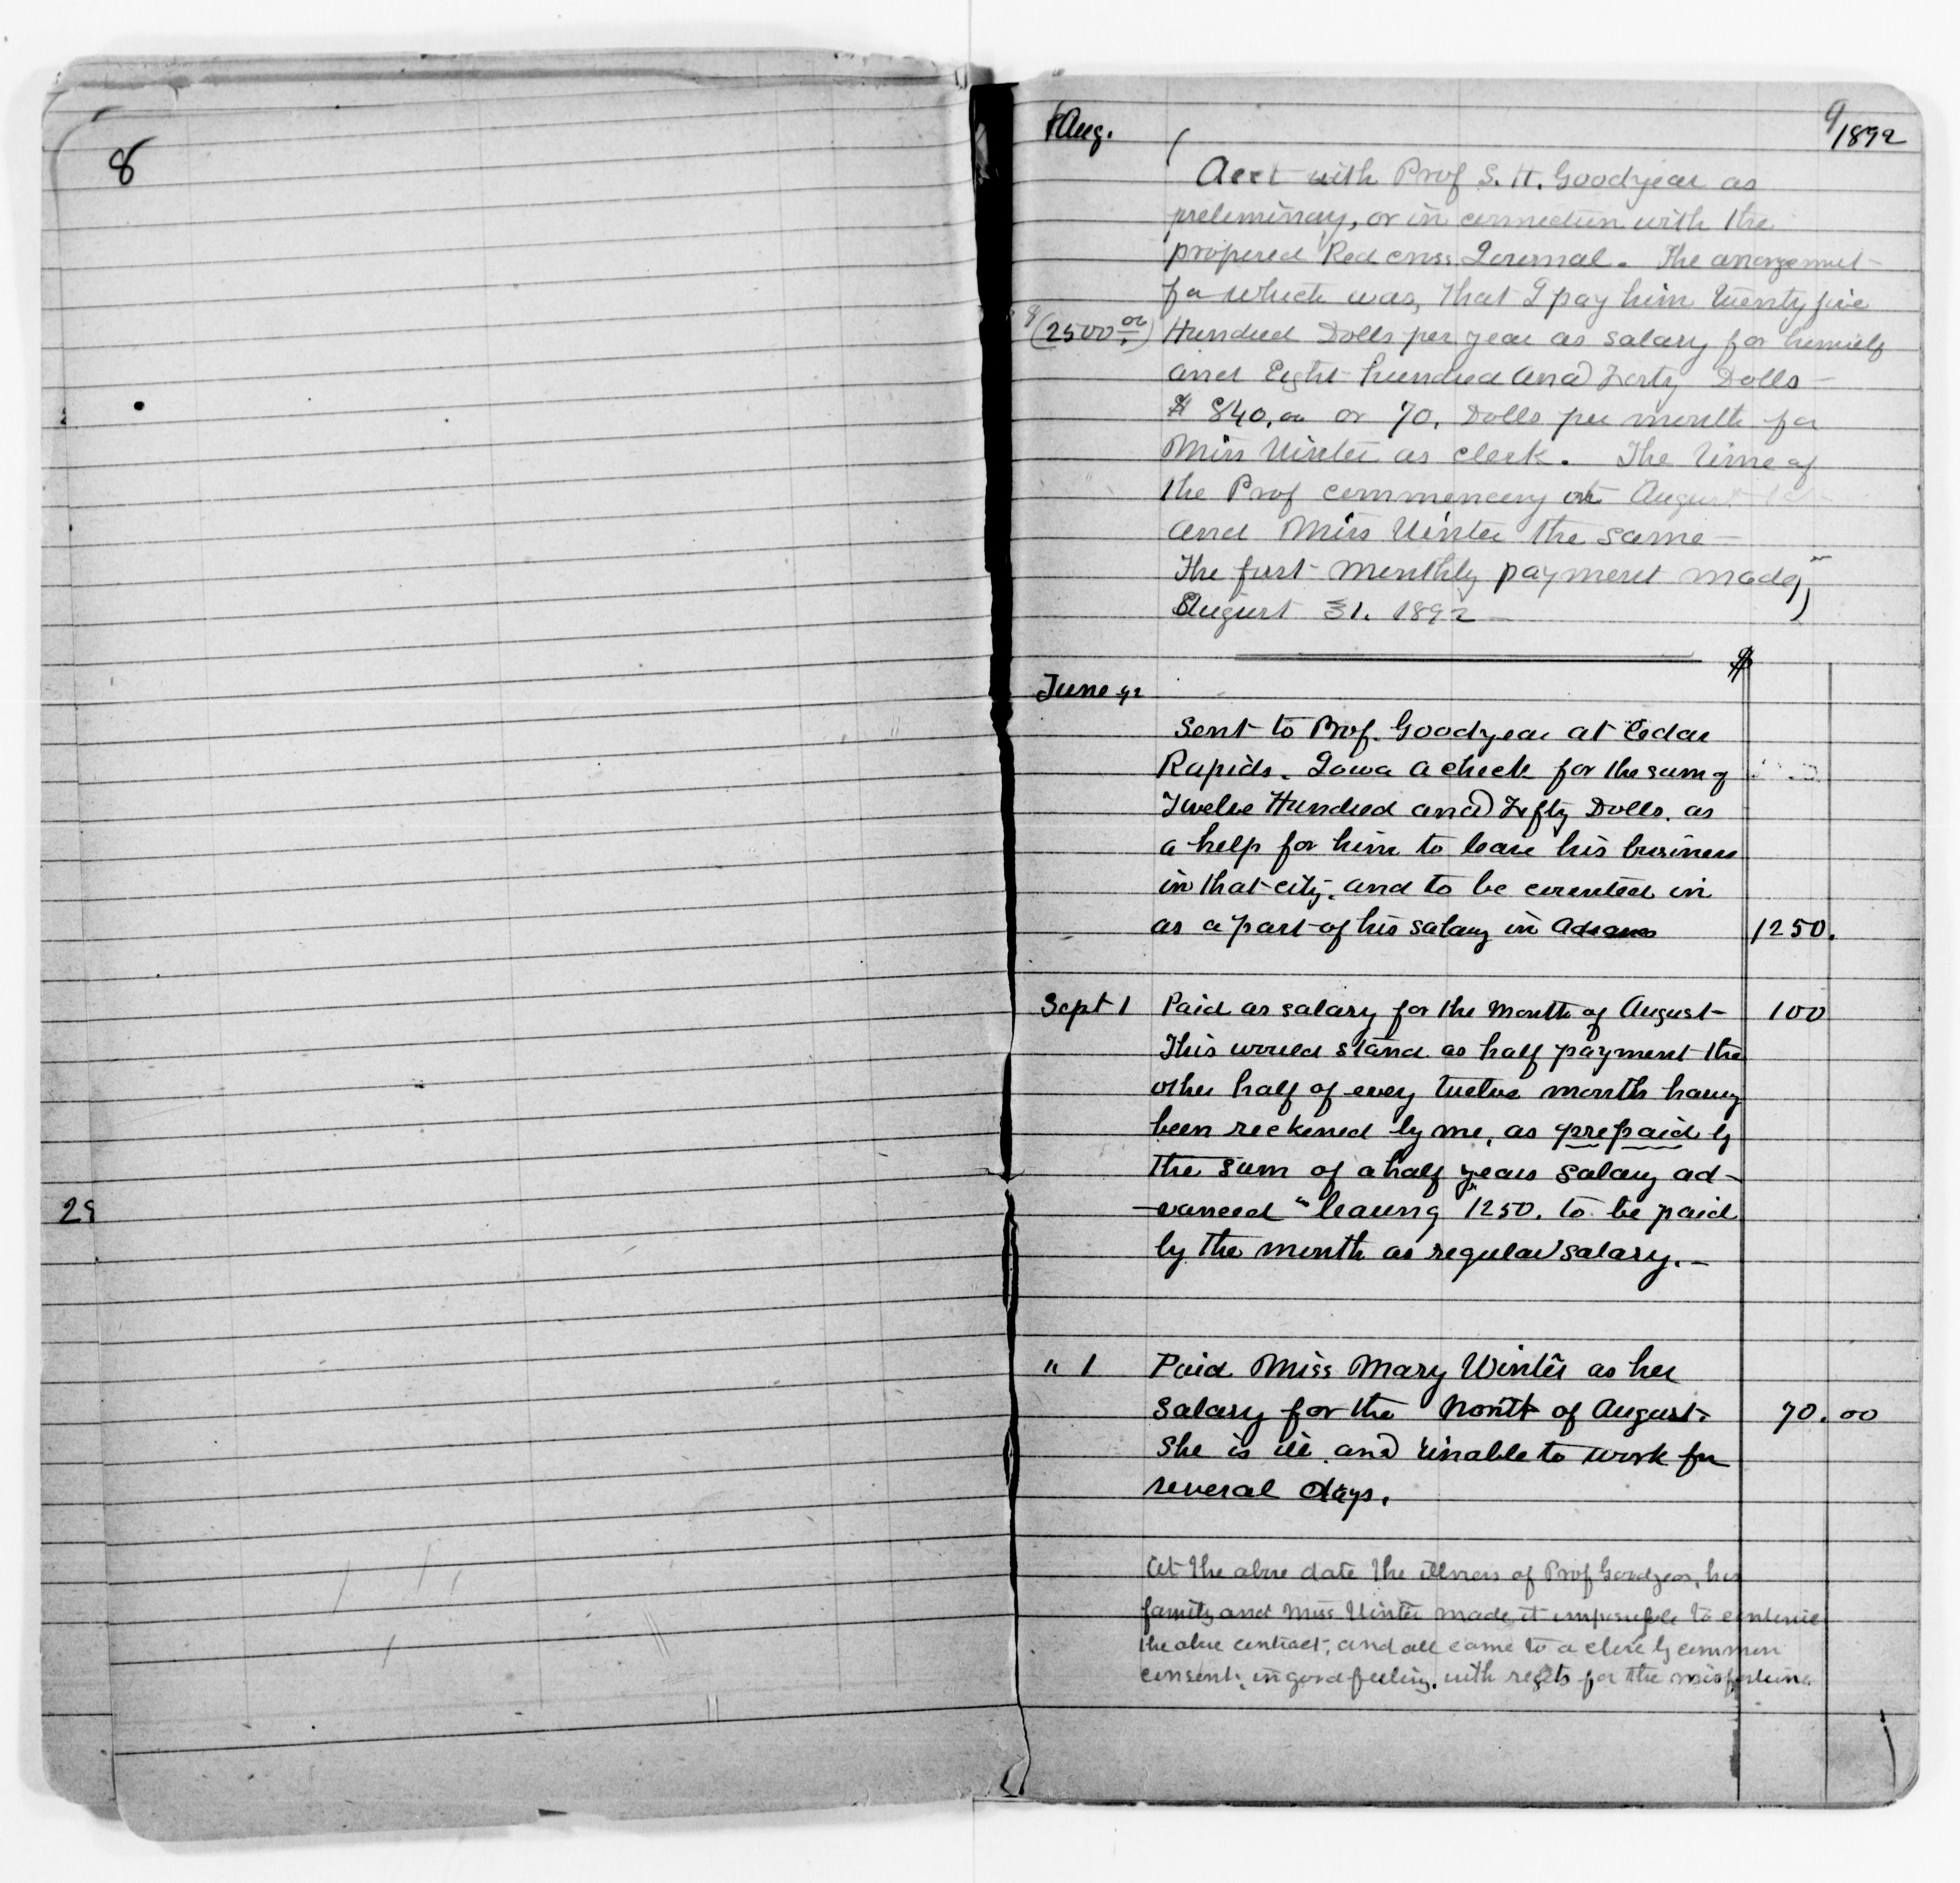 8
29
Aug.
9
1892
(
Acct with Prof S. H. Goodyear as
preliminay, or in connection with the
propered Red cross Journal. The arrangemet
for which was, that I pay him twenty five
$(2500 00) Hundred Dolls per year as salary for himself
and Eight hundred and Forty Dolls
$ 840.00 or 70. Dolls per month for
Miss Winter as clerk. The time of
the Prof commencing on August 1st
and Miss Winter the same
The first monthly payment made,
August 31. 1892 )
$
June 92
Sent to Prof. Goodyear at Cedar
Rapids. Iowa a check for the sum of
Twelve Hundred and Fifty Dolls. as
a help for him to leave his business
in that city. and to be counted in
as a part of his salary in Advance 1250.
Sept 1 Paid as salary for the Month of August 100
This would stand as half payment the
other half of every twelve month having
been reckened by me, as prepaid by
the sum of a half years salary ad-
vanced "leaving "1250. to be paid
by the month as regular salary. —
" 1 Paid Miss Mary Winter as her
salary for the Month of August. 70.00
She is ill and unable to work for
several days.
At the above date the illness of Prof Goodyear, his
family and Miss Winter made it impossible to continue
the above contract, and all came to a close by common
consent, in good feeling, with regrets for the misfortune.